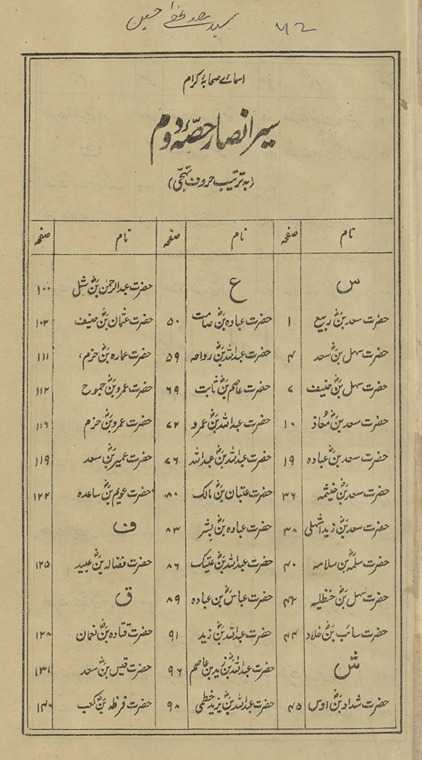 ۷۱۲
اسمائے صحابۂ کرام
سیر انصار حصّۂ دوم
(بہ ترتیب حروف تہجّی)
نام صفحہ نام صفحہ نام صفحہ
س ع حضرت عبدالرحمن بن شبل ۱۰۰
حضرت سعد بن ربیع ۱ حضرت عبادہ بن صامت ۵۰ حضرت عثمان بن حنیف ۱۰۳
حضرت سہل بن سعد ۴ حضرت عبداللہ بن رواحہ ۵۹ حضرت عمارہ بن حزم، ۱۱۱
حضرت سہل بن حنیف ۷ حضرت عاصم بن ثابت ۶۹ حضرت عمرو بن جموح ۱۱۲
حضرت سعد بن معاذ ۱۰ حضرت عبداللہ بن عمرو ۷۲ حضرت عمرو بن حزم ۱۱۶
حضرت سعد بن عبادہ ۱۹ حضرت عبداللہ بن عبداللہ ۷۶ حضرت عمیر بن سعد ۱۱۹
حضرت سعد بن خیثمہ ۳۶ حضرت عتبان بن مالک ۸۰ حضرت عویم بن ساعدہ ۱۲۲
حضرت سعد بن زید اشہلی ۳۸ حضرت عبادہ بن بشر ۸۳ ف
حضرت سلمہ بن سلامہ ۴۰ حضرت عبداللہ بن عتیک ۸۶ حضرت فضالہ بن عبید ۱۲۵
حضرت سہل بن حنظلیہ ۴۲ حضرت عباس بن عبادہ ۸۹ ق
حضرت سائب بن خلاد ۴۴ حضرت عبداللہ بن زید ۹۱ حضرت قتادہ بن نعمان ۱۲۸
ش حضرت عبداللہ بن زید بن عاصم ۹۶ حضرت قیس بن سعد ۱۳۱
حضرت شداد بن اوس ۴۵ حضرت عبداللہ بن یزید خطمی ۹۸ حضرت قرظہ بن کعب ۱۴۰